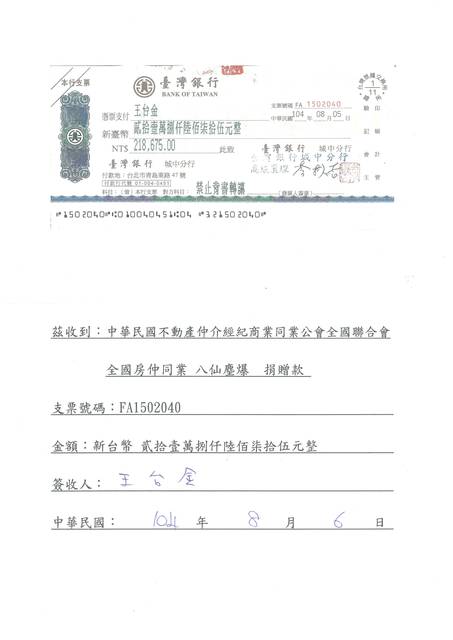 本行支票
臺灣銀行
BANK OF TAIWAN
憑票支付 王台金
支票號碼 FA 1502040
中華民國 104 年 08 月 05 日
新臺幣 貳拾壹萬捌仟陸佰柒拾伍元整
NT$ 218,675.00 此致
臺灣銀行 城中分行
臺灣銀行 城中分行
付款地：台北市青島東路 47 號
付款行代號 01-004-0451
禁止背書轉讓
科目：(借) 本行支票 對方科目：
(發票人簽章)
驗印
記帳
會計
主管
⑈1502040⑈⑆010040451⑆04 ⑈32150204 0⑈
茲收到：中華民國不動產仲介經紀商業同業公會全國聯合會
全國房仲同業 八仙塵爆 捐贈款
支票號碼：FA1502040
金額：新台幣 貳拾壹萬捌仟陸佰柒拾伍元整
簽收人： 王台金
中華民國： 104 年 8 月 6 日